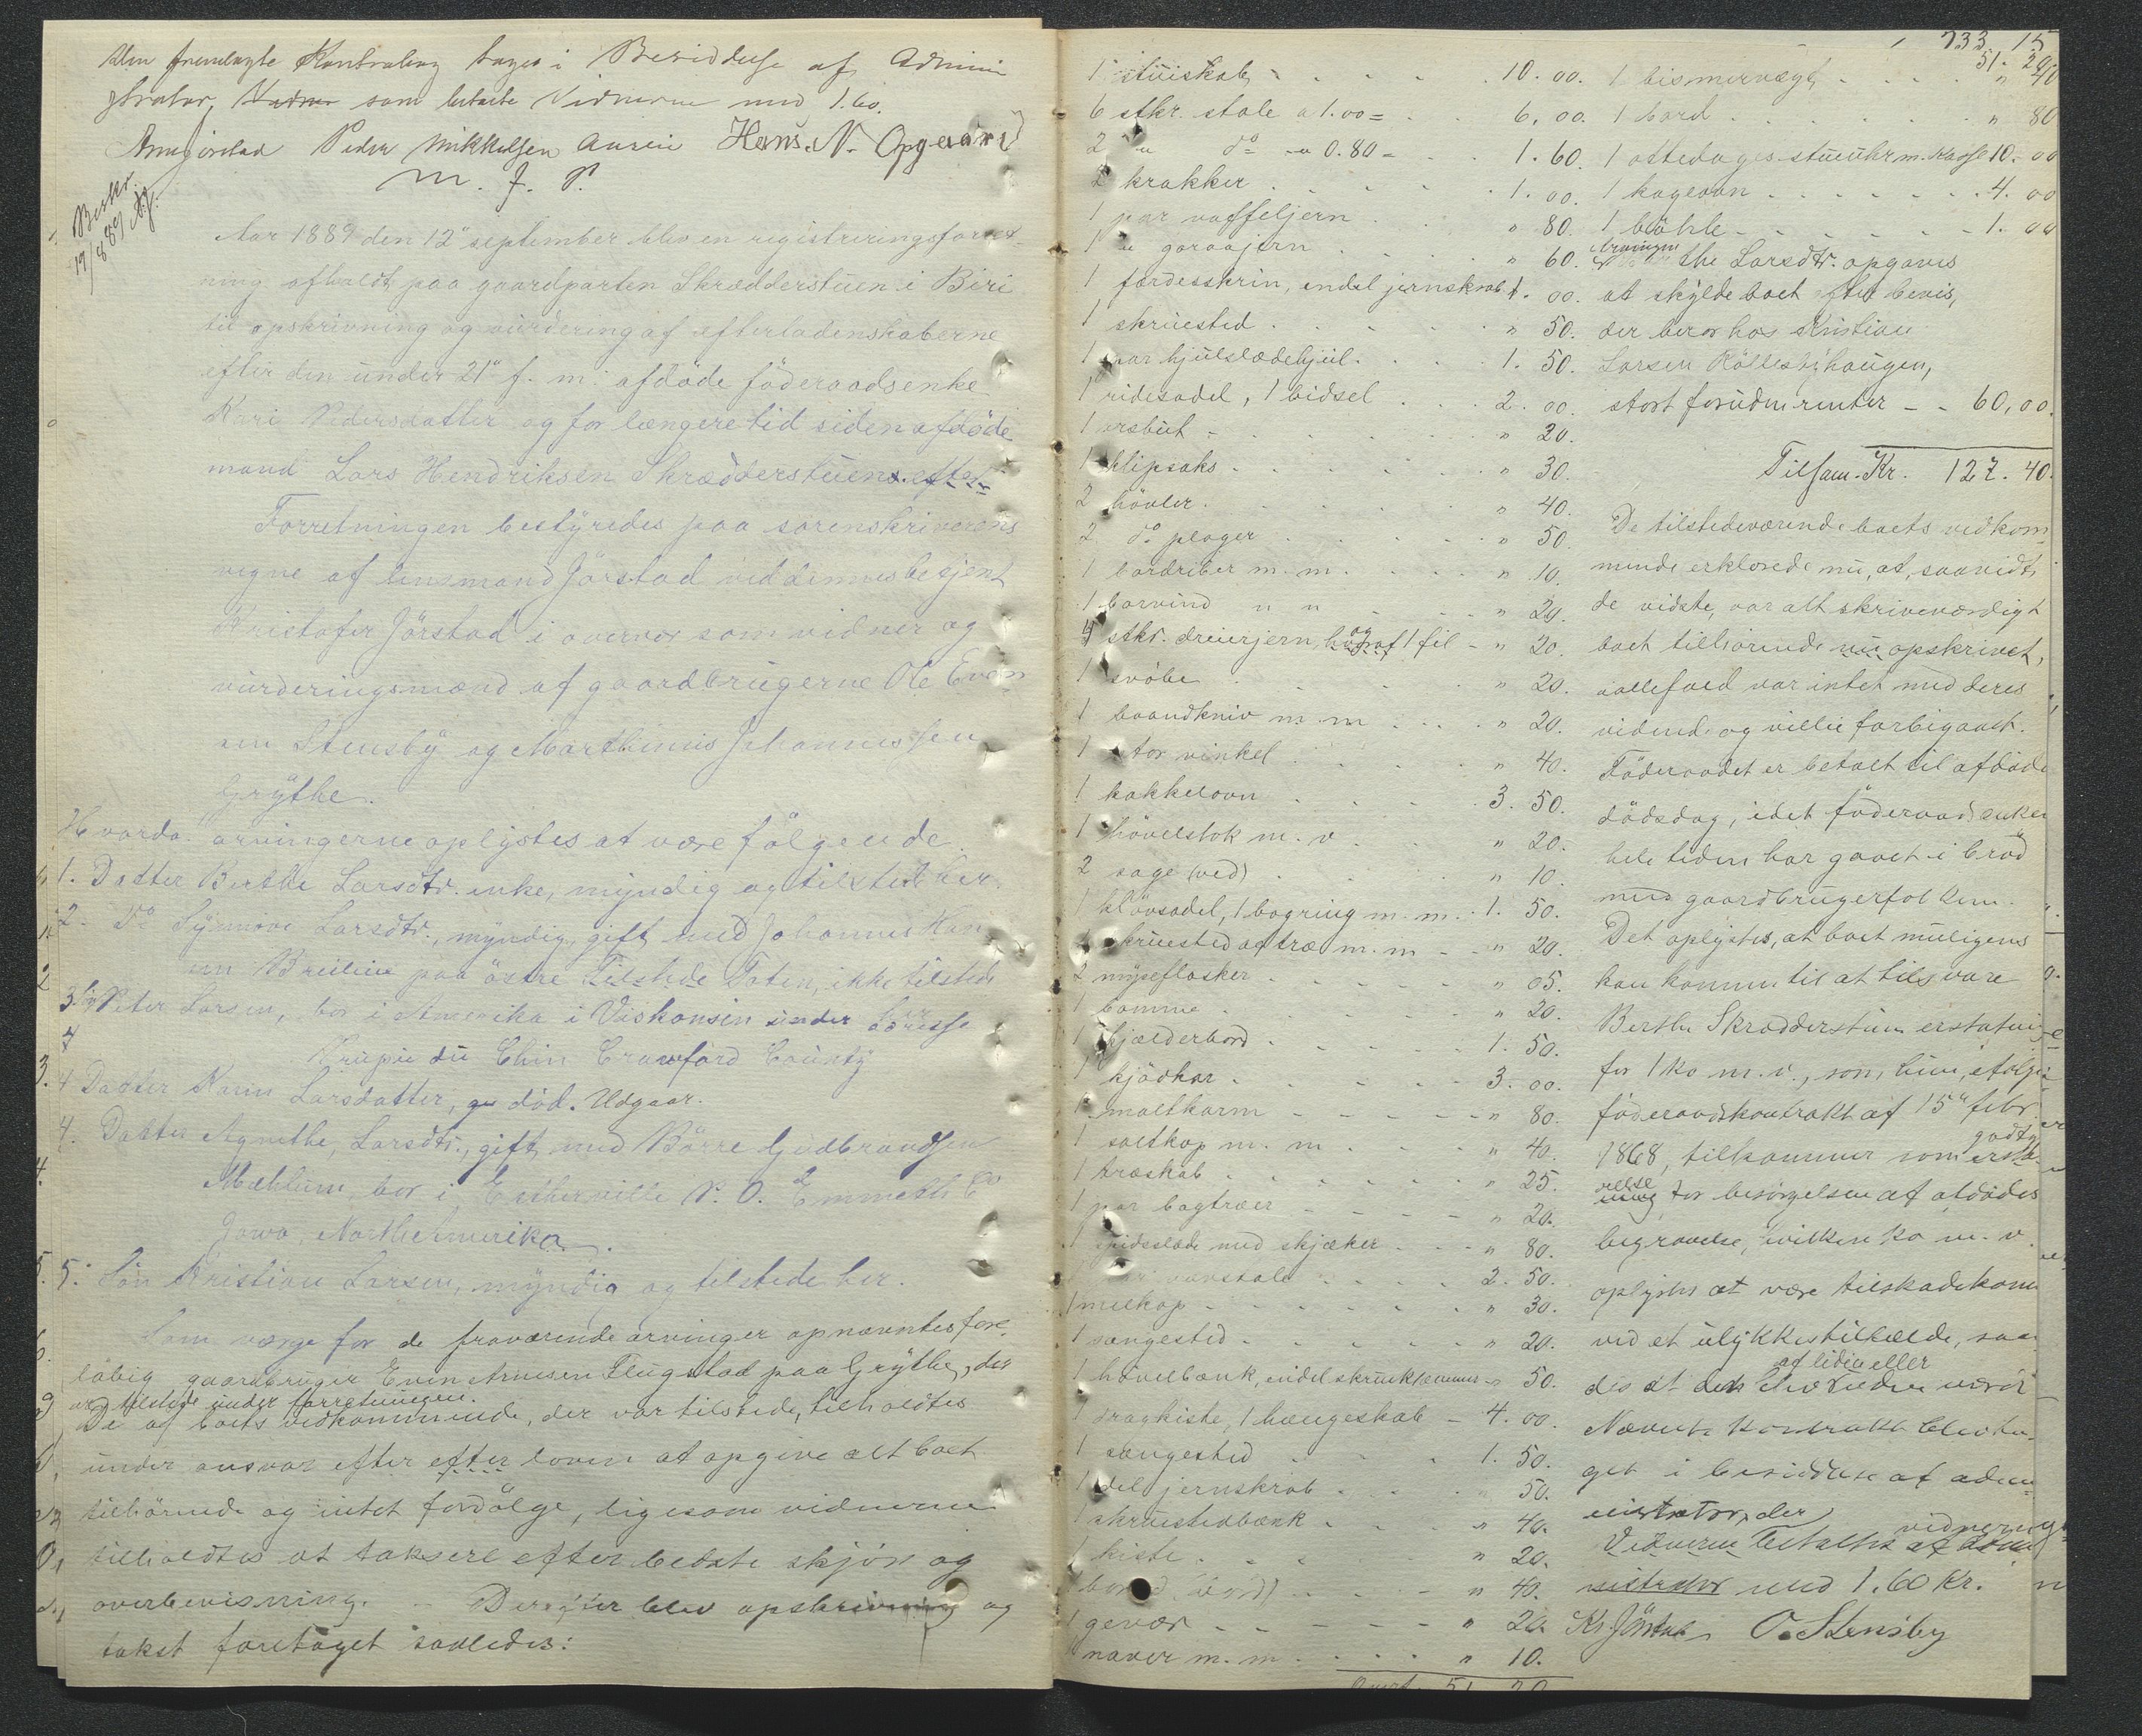 Den fremlagte Kontrabog tages i Besiddelse af Admini
strator, Vidner som betalte Vidnerne med 1.60.
Peder Mikkelsen Hans. N. Opgaard
M. F. P.
Aar 1889 den 12te september blev en registreringsforret-
ning afholdt paa gaardparten Skrædderstuen i Biri
til opskrivning og vurdering af efterladenskaberne
efter den under 21de f. m. afdöde föderaadsenke
Kari Pedersdatter og for længere tid siden afdöde
mand Lars Hendriksen Skrædderstuen. efter
Forretningen bestyredes paa sorenskriverens
vegne af lensmand Jörstad ved dennes betjent
Kristofer Jörstad i overvær som vidner og
vurderingsmænd af gaardbrugerne Ole Even
sen Stensby og Marthinus Johannessen
Grythe.
Hvorda arvingerne oplystes at være fölgende
1. Datter Berthe Larsdtr. enke, myndig og tilstede her.
2. Do Synnöve Larsdtr., myndig, gift med Johannes Han
sen Breilien paa östre Toten, ikke tilstede
3. Peter Larsen, bor i Amerika i Viskonsin under adresse
Prupie du Chin Crawford County
4 Datter Karen Larsdatter, død. Udgaar.
4. Datter Agnethe, Larsdtr., gift med Börre Gudbrandsen
Mæhlum, bor i Estherville P. O. Emmeth Co
Jowa, North Amerika.
5. Sön Kristian Larsen, myndig og tilstede her.
Som værge for de fraværende arvinger opnævntes fore-
löbig gaardbruger Even Arnesen Flugstad paa Grythe, der
var tilstede under forretningen.
De af boets vedkommende, der var tilstede, tilholdtes
under ansvar efter efter loven at opgive alt boet
tilhörende og intet fordölge, ligesom vidnerne
tilholdtes at taksere efter bedste skjön og
overbevisning. - Derefter blev opskrivning og
takst foretaget saaledes:
1 stuiskab 10.00.
6 stkr. stole a 1.00 = 6.00.
2 " do a 0.80 = 1.60.
2 krakker 1.00.
1 par vaffeljern " 80.
1 " goraajern " 60.
1 færdesskrin, endel jernskrab 1.00.
1 skruested " 50.
1 par hjulslædehjul 1.50.
1 ridesadel, 1 bidsel 2.00.
1 orsbut " 20.
1 klipsaks " 30.
2 hövler " 40.
2 do ploger " 50.
1 bordriber m. m. " 10.
1 borvind " " " 20.
4 stkr. dreierjern, og 1 fil " 20.
1 svöbe " 20.
1 baandkniv m. m " 20.
1 stor vinkel " 40.
1 kakkelovn 3.50.
1 hövelstok m. v " 20.
2 sage (ved) " 10.
1 klövsadel, 1 bogring m. m. 1.50.
1 skruested af træ m. m " 20.
2 myseflasker " 05.
1 bomme " 20.
1 kjælderbord 1.50.
1 kjödkar 3.00.
1 maltkarm " 80.
1 saltkop m. m. " 40.
1 træskab " 25.
1 par bogtræer " 20.
1 spidsslæde med skjæker " 80.
vævstole 2.50.
1 melkop " 30.
1 sengested " 20.
1 hövelbænk, endel skrueklemmer " 50.
1 dragkiste, 1 hængeskab 4.00.
1 sengested 1.50.
1 del jernskrab " 50.
1 skruestedbænk " 40.
1 kiste " 20.
bord " 40.
1 gevær " 20.
1 naver m. m " 10.
Overf. 51 20
733 15
51. 20.
1 bismervægt " 40
1 bord " 80
1 ottedages stueuhr m. kasse 10.00
1 kageovn 4.00
1 bökle 1.00
Arvingen
the Larsdtr. opgaves
at skylde boet efter bevis,
der beror hos Kristian
Larsen haugen,
stort foruden renter 60,00.
Tilsam. Kr. 127.40.
De tilstedeværende boets vedkom
mende erklærede nu, at, saavidt
de vidste, var alt skriveværdigt
boet tilhörende nu opskrivet,
ialfefald var intet med deres
vidende og villie forbigaaet.
Föderaadet er betalt til afdöde
dödsdag, idet föderaadsenken
hele tiden har gaaet i bröd
med gaardbrugerfolkene.
Det oplystes, at boet muligens
kan komme til at tilsvare
Berthe Skrædderstuen erstatning
for 1 ko m. v., som hun, ifölge
föderaadskontrakt af 15de febr.
1868, tilkommer som godtg
relse for besörgelsen af afdödes
begravelse, hvilken ko m. v.
oplystes at være tilskadekom
ved et ulykkestilfælde, saa
des at den blev liden eller værd
Nævnte kontrakt blev ta-
get i besiddelse af admi
nistrator, der vidnerne
Vidnerne betaltes af admi
nistrator med 1.60 Kr.
Kr. Jörstad O. Stensby
Beskr.
17/8 89